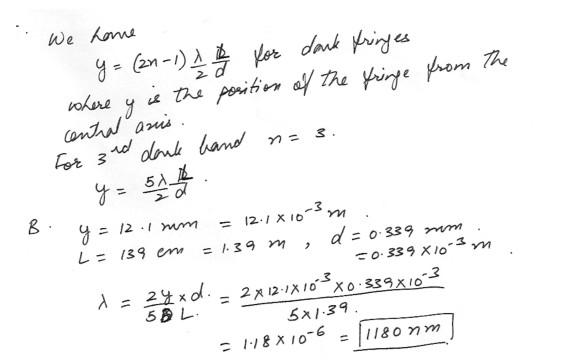 ∴ We have
y = (2n-1) λ/2 L/d for dark fringes
where y is the position of the fringe from the
central axis.
For 3rd dark band n = 3.
y = 5λ/2 L/d.
B. y = 12.1 mm = 12.1 × 10⁻³ m.
L = 139 cm = 1.39 m, d = 0.339 mm
= 0.339 × 10⁻³ m.
λ = 2y/5L × d. = 2 × 12.1 × 10⁻³ × 0.339 × 10⁻³ / 5 × 1.39.
= 1.18 × 10⁻⁶ = 1180 nm